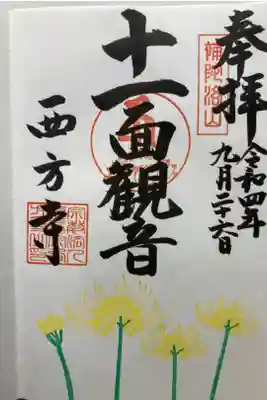 奉拝
補陀洛山
令和四年
九月二十六日
十一面觀音
西方寺